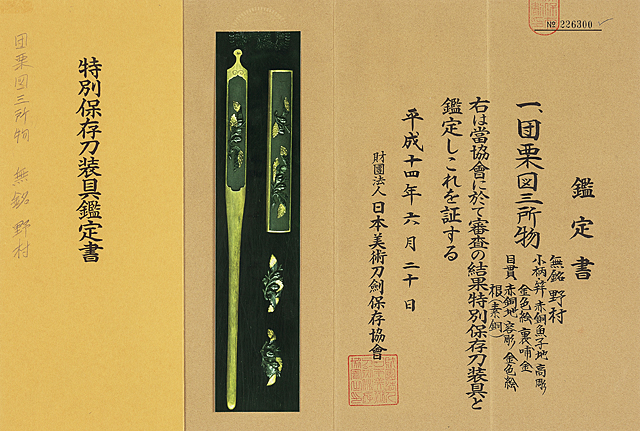 No 226300
鑑定書
一、団栗図三所物
無銘 野村
小柄・笄 赤銅魚子地 高彫
金色絵 裏哺金
目貫 赤銅地 容彫 金色絵
根(素銅)
右は當協會に於て審査の結果特別保存刀装具と
鑑定しこれを証する
平成十四年六月二十日
財團法人日本美術刀劍保存協會
特別保存刀装具鑑定書
団栗図三所物 無銘 野村